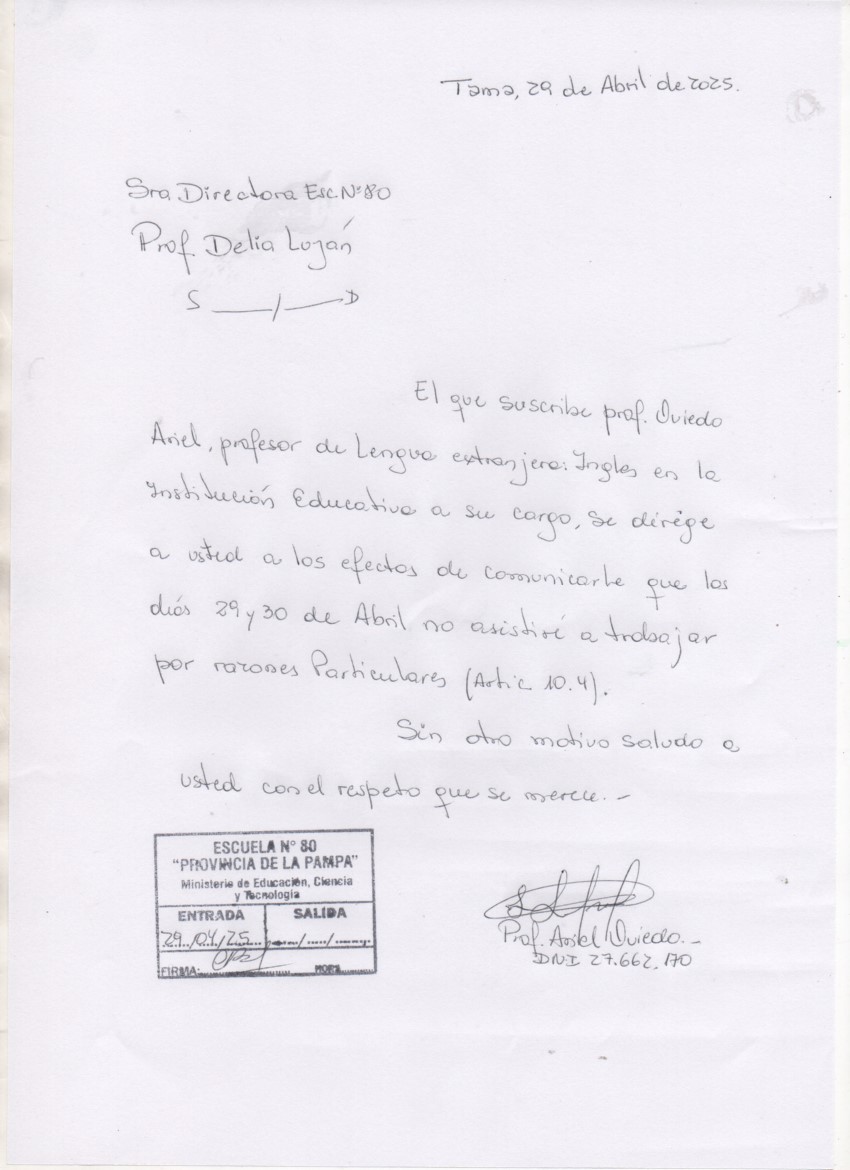 Tama, 29 de Abril de 2025.
Sra Directora Esc N° 80
Prof. Delia Luján
S ____/____ D
El que suscribe prof. Oviedo
Ariel, profesor de Lengua extranjera: Ingles en la
Institución Educativa a su cargo, se dirige
a usted a los efectos de comunicarle que los
días 29 y 30 de Abril no asistiré a trabajar
por razones Particulares (Artic 10.4).
Sin otro motivo saludo a
usted con el respeto que se merece.-
ESCUELA N° 80
"PROVINCIA DE LA PAMPA"
Ministerio de Educación, Ciencia
y Tecnología
ENTRADA SALIDA
29/04/25 ..../..../....
FIRMA: HORA
Prof. Ariel Oviedo.-
DNI 27.662.170